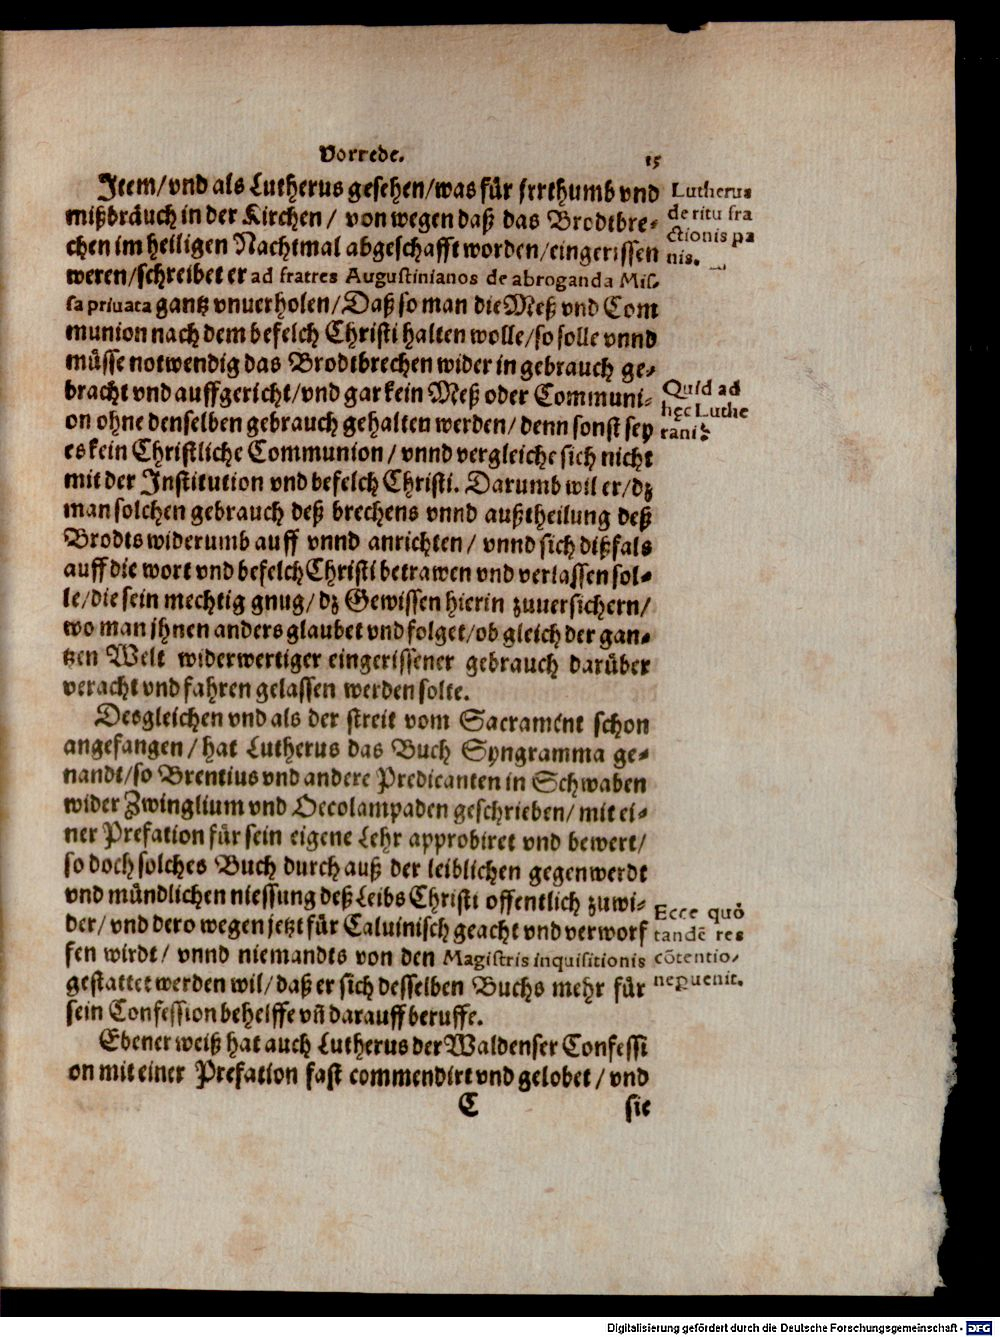 Vorrede. 15
Item/vnd als Lutherus gesehen/was für jrrthumb vnd
mißbräuch in der Kirchen / von wegen daß das Brodtbre-
chen im heiligen Nachtmal abgeschafft worden/eingerissen
weren/schreibet er ad fratres Augustinianos de abroganda Mis-
sa priuata gantz vnuerholen/Daß so man die Meß vnd Com
munion nach dem befelch Christi halten wolle/so solle vnnd
müsse notwendig das Brodtbrechen wider in gebrauch ge-
bracht vnd auffgericht/vnd gar kein Meß oder Communi-
on ohne denselben gebrauch gehalten werden/ denn sonst sey
es kein Christliche Communion / vnnd vergleiche sich nicht
mit der Institution vnd befelch Christi. Darumb wil er/dz
man solchen gebrauch deß brechens vnnd außtheilung deß
Brodts widerumb auff vnnd anrichten / vnnd sich dißfals
auff die wort vnd befelch Christi betrawen vnd verlassen sol-
le/die sein mechtig gnug/dz Gewissen hierin zuuersichern/
wo man jhnen anders glaubet vnd folget/ob gleich der gan-
tzen Welt widerwertiger eingerissener gebrauch darüber
veracht vnd fahren gelassen werden solte.
Desgleichen vnd als der streit vom Sacrament schon
angefangen/hat Lutherus das Buch Syngramma ge-
nandt/so Brentius vnd andere Predicanten in Schwaben
wider Zwinglium vnd Oecolampaden geschrieben/ mit ei-
ner Prefation für sein eigene Lehr approbiret vnd bewert/
so doch solches Buch durch auß der leiblichen gegenwerdt
vnd mündlichen niessung deß Leibs Christi offentlich zuwi-
der/ vnd dero wegen jetzt für Caluinisch geacht vnd verworf
fen wirdt/ vnnd niemandts von den Magistris inquisitionis
gestattet werden wil/ daß er sich desselben Buchs mehr für
sein Confession behelffe vñ darauff beruffe.
Ebener weiß hat auch Lutherus der Waldenser Confessi
on mit einer Prefation fast commendirt vnd gelobet / vnd
C sie
Lutherus
de ritu fra
ctionis pa
nis.
Quid ad
hęc Luthe
rani?
Ecce quò
tandē res
cōtentio-
nis ꝑuenit.
Digitalisierung gefördert durch die Deutsche Forschungsgemeinschaft - DFG